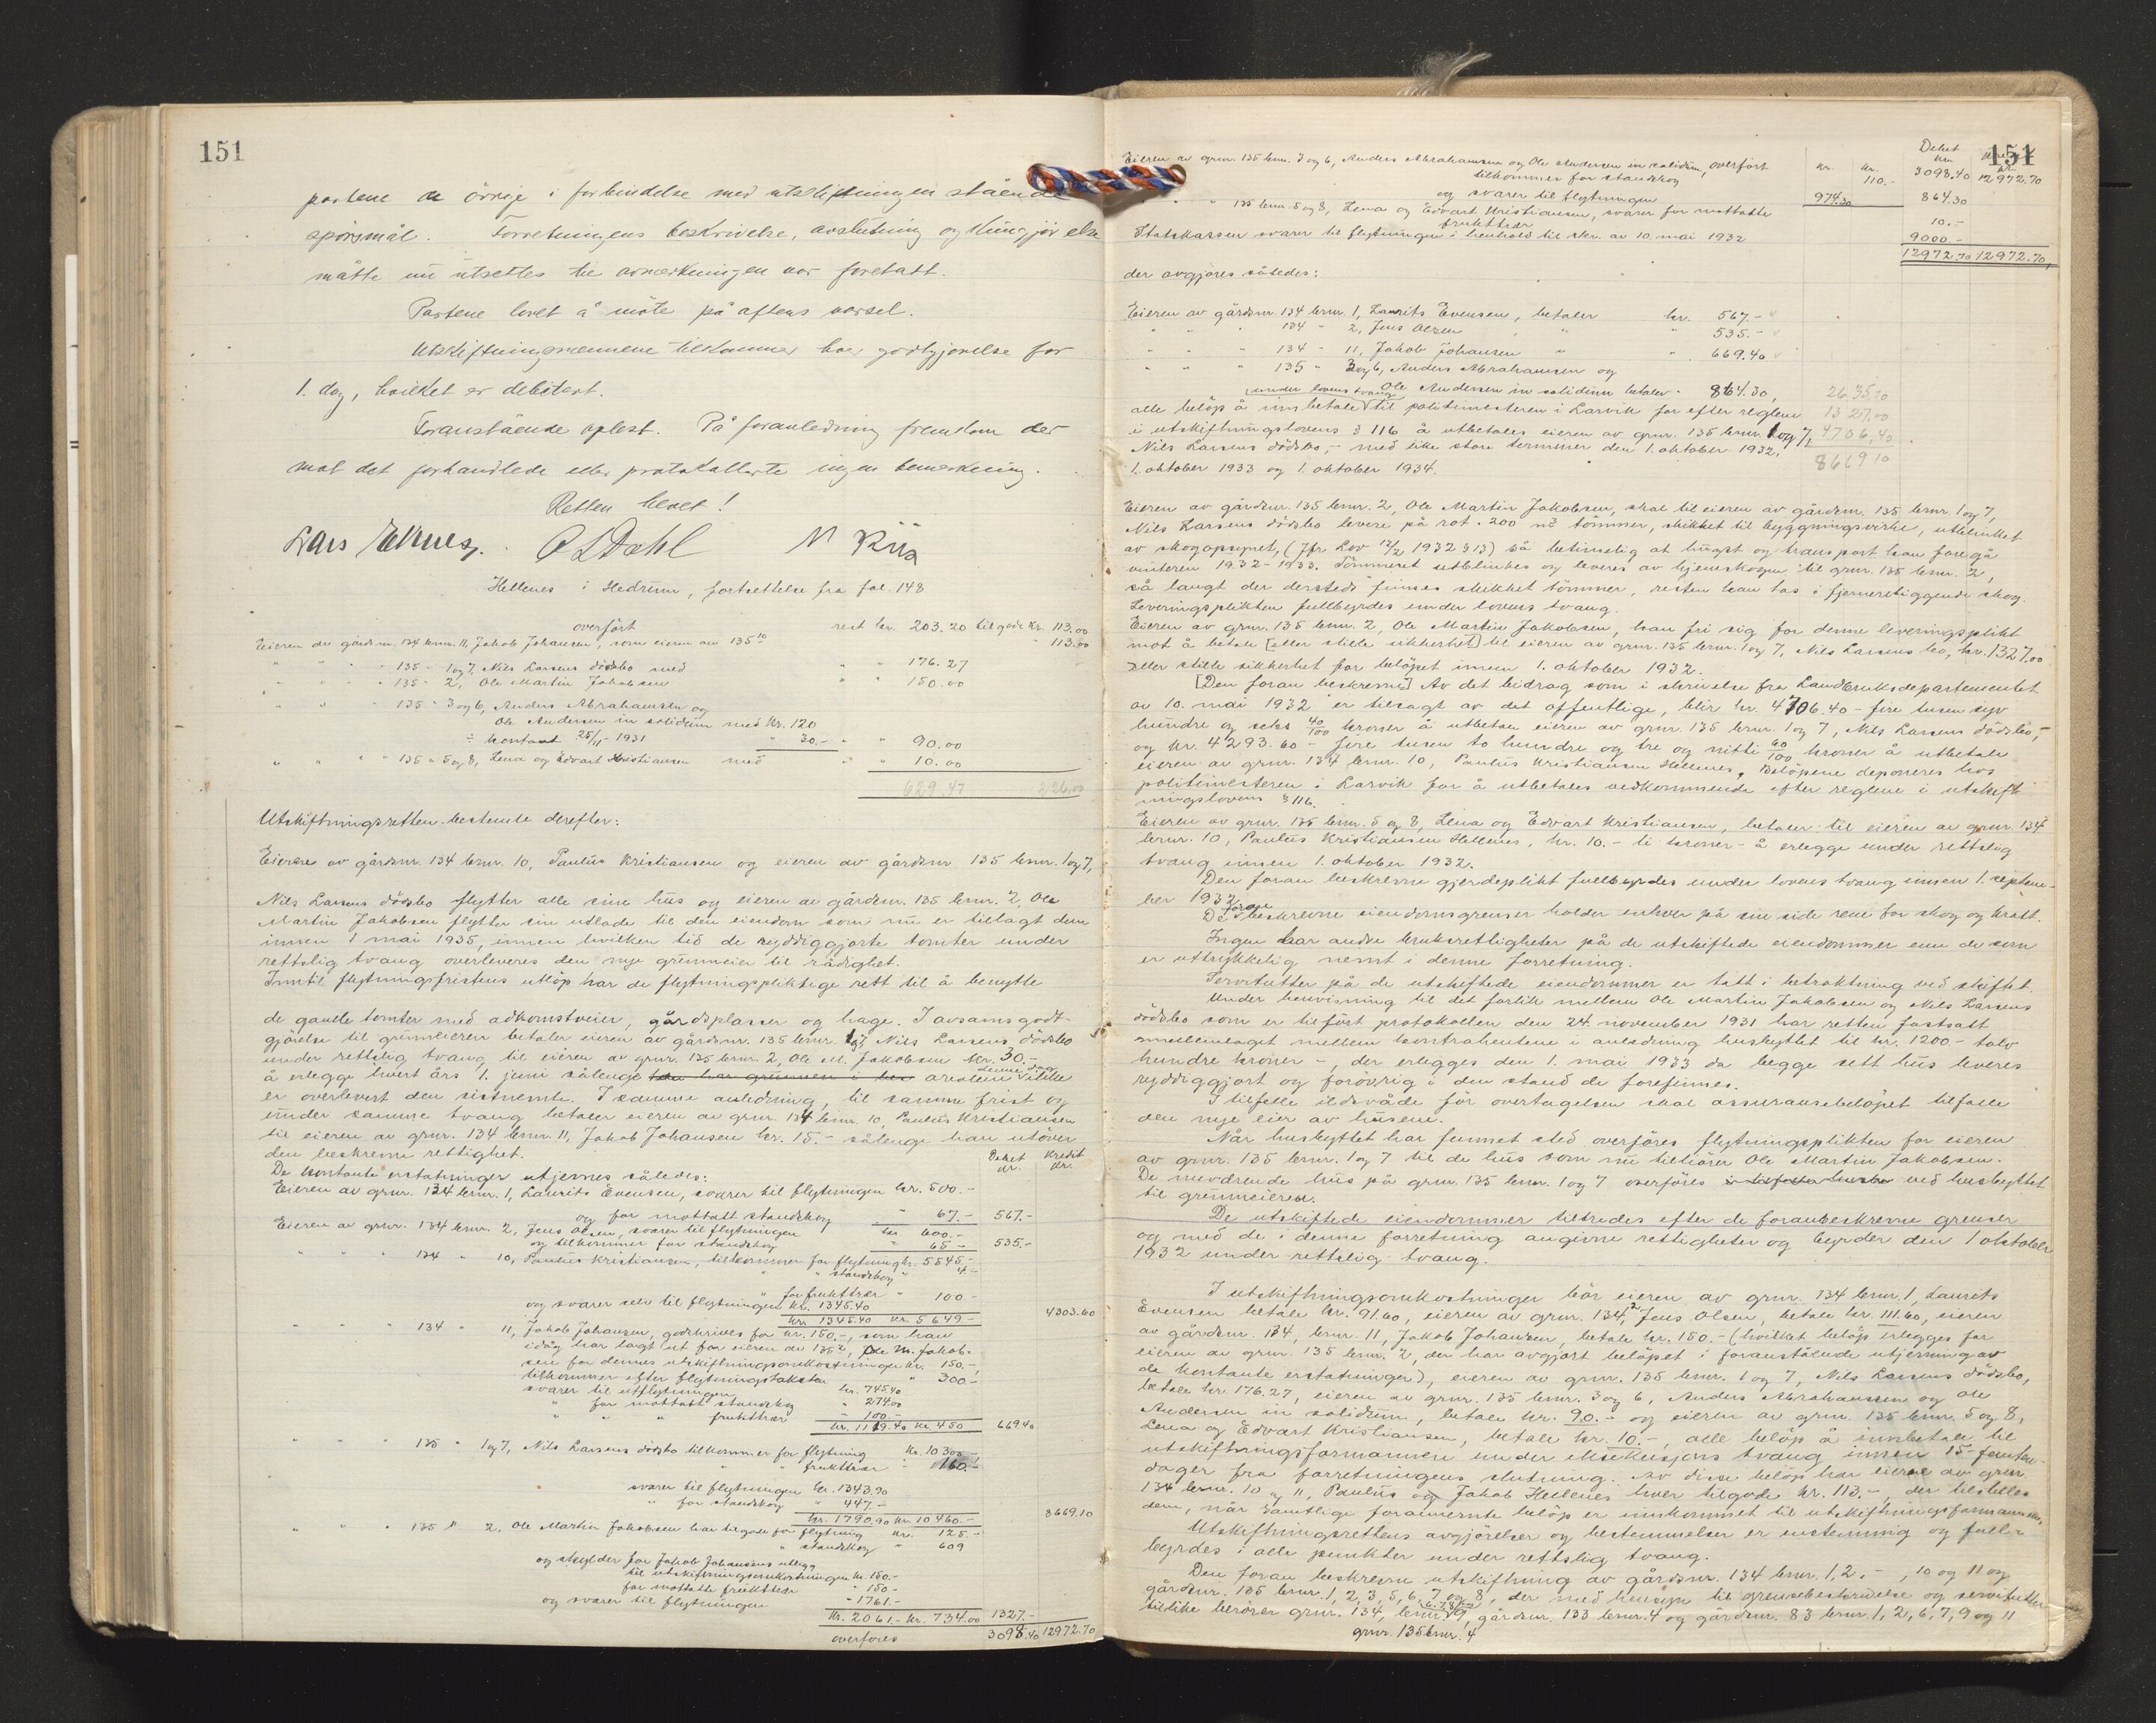 151
partene og övrige i forbindelse med utskiftningen stående
spörsmål. Forretningens beskrivelse, avslutning og kungjörelse
måtte nu utsettes til avmerkningen var foretatt.
Partene lovet å möte på aftens varsel.
Utskiftningsmennene tilkommer hver godtgjörelse for
1. dag, hvilket er debitert.
Foranstående oplest. På foranledning fremkom der
mot det forhandlede eller protokollerte ingen bemerkning.
Retten hevet!
Lars Elknes. O L Dahl N Riis
Hellenes i Hedrum, fortsettelse fra fol. 148
overfört rest kr. 203.20 tilgode kr. 113.00
Eieren av gårdsnr. 134 brnr. 11, Jakob Johansen, som eieren av 135 10 " 113.00
" " " " 135 - 1 og 7, Nils Larsens dödsbo med " " 176.27
" " " " 135 - 2, Ole Martin Jakobsen " " 150.00
" " " " 135 - 3 og 6, Anders Abrahamsen og
Ole Andersen in solidum med kr. 120
÷ kontant 25/11 - 1931 " 30.- " " 90.00
" " " " 135 " 5 og 8, Lena og Edvart Kristiansen med " " 10.00
629.47 226.00
Utskiftningsretten bestemte derefter:
Eieren av gårdsnr. 134 brnr. 10, Paulus Kristiansen og eieren av gårdsnr 135 brnr. 1 og 7,
Nils Larsens dödsbo flytter alle sine hus og eieren av gårdsnr. 135 brnr. 2, Ole
Martin Jakobsen flytter sin utlade til den eiendom som nu er tillagt dem
innen 1 mai 1935, innen hvilken tid de ryddiggjorte tomter under
rettslig tvang overleveres den nye grunneier til rådighet.
Inntil flytningsfristens utlöp har de flytningspliktige rett til å benytte
de gamle tomter med adkomstveier, gårdsplasser og hage. I avsavnsgodt-
gjörelse til grunneieren betaler eieren av gårdsnr. 135 brnr. 1 og 7 Nils Larsens dödsbo
under rettslig tvang til eieren av grnr. 135 brnr. 2, Ole M. Jakobsen kr. 30.-
å erlegge hvert års 1. juni sålenge han har grunnen i arealene ikke
er overlevert den sistnevnte. I samme anledning, til samme frist og
under samme tvang betaler eieren av grnr. 134 brnr. 10, Paulus Kristiansen
til eieren av grnr. 134 brnr. 11, Jakob Johansen kr. 15.- sålenge han utöver
den beskrevne rettighet.
De kontante erstatninger utjevnes således: Debet kr. Kredit kr.
Eieren av grnr. 134 brnr. 1, Laurits Evensen, svarer til flytningen kr. 500.-
og for mottatt standskog " 67.- 567.-
Eieren av grnr. 134 brnr. 2, Jens Olsen, svarer til flytningen kr 600.-
og tilkommer for standskog " 65 - 535.-
" " " 134 " 10, Paulus Kristiansen, tilkommer for flytning kr. 5545.-
" " standskog " 4.-
" for frukttrær " 100 -
og svarer selv til flytningen kr. 1345.40
kr. 1345.40 kr. 5649 - 4303.60
" " " 134 " 11, Jakob Johansen, godskrives for kr. 150.-, som han
idag har lagt ut for eieren av 135 2, Ole M. Jakob-
sen for dennes utskiftningsomkostninger kr. 150,-
tilkommer efter flytningstaksten " 300 -
svarer til utflytningen kr. 745.40
" for mottatt standskog " 274.00
" " " frukttrær - 100.-
kr. 1119.40 kr. 450 669.40
" " " 135 " 1 og 7, Nils Larsens dödsbo tilkommer for flytning kr. 10300 -
" " frukttrær " 160.-
svarer til flytningen kr. 1343.90
" for standskog " 447 -
kr. 1790.90 kr. 10460.- 8669.10
" " " 135 " 2, Ole Martin Jakobsen har tilgode for flytning kr. 125.-
" standskog " 609
og skylder for Jakob Johansens utlegg
til utskiftningsomkostningen kr. 150.-
for mottatte frukttrær " 150 -
og svarer til flytningen - 1761.-
kr. 2061.- kr. 734.00 1327.-
overföres 3098.40 12972.70
151
Debet
Eieren av grnr. 135 brnr. 3 og 6, Anders Abrahamsen og Ole Andersen in solidum, overfört kr. kr. kr 3098.40 12972.70
tilkommer for standskog 110.-
og svarer til flytningen 974.30 864.30
" " 135 brnr. 5 og 8, Lena og Edvart Kristiansen, svarer for mottatte
frukttrær 10.-
Statskassen svarer til flytningen i henhold til skr. av 10. mai 1932 9000.-
12972.70 12972.70,
der avgjöres således:
Eieren av gårdsnr. 134 brnr. 1, Laurits Evensen, betaler kr. 567.-
" " " 134 - 2, Jens Olsen " " 535.-
" " " 134 - 11, Jakob Johansen " " 669.40
" " " 135 " 3 og 6, Anders Abrahamsen og
Ole Andersen in solidum betaler - 864.30, 2635.70
under lovens tvang
alle belöp å innbetale til politimesteren i Larvik for efter reglene 1327.00
i utskiftningslovens § 116 å utbetales eieren av grnr. 135 brnr. 1 og 7, 4706,40
Nils Larsens dödsbo, - med like store terminer den 1. oktober 1932, 8669 10
1. oktober 1933 og 1. oktober 1934.
Eieren av gårdsnr. 135 brnr. 2, Ole Martin Jakobsen, skal til eieren av gårdsnr. 135 brnr 1 og 7,
Nils Larsens dödsbo levere på rot - 200 m3 tömmer, skikket til byggningsvirke, utblinket
av skogopsynet, (Jfr Lov 12/2 1932 § 13) så betimelig at hugst og transport kan foregå
vinteren 1932 - 1933. Tömmeret utblinkes og leveres av hjemskogen til grnr. 135 brnr. 2,
så langt der dersteds finnes skikket tömmer, resten kan tas i fjerneretliggende skog.
Leveringsplikten fullbyrdes under lovens tvang.
Eieren av grnr. 135 brnr. 2, Ole Martin Jakobsen, kan fri sig for denne leveringsplikt
mot å betale [eller stille sikkerhet] til eieren av grnr. 135 brnr. 1 og 7, Nils Larsens bo, kr. 1327.00
eller stille sikkerhet for belöpet innen 1. oktober 1932.
[Den foran beskrevne] Av det bidrag som i skrivelse fra Landbruksdepartementet
av 10. mai 1932 er tilsagt av det offentlige, blir kr. 4706.40 - fire tusen syv
hundre og seks 40/100 kroner å utbetale eieren av grnr. 135 brnr. 1 og 7, Nils Larsens dödsbo, -
og kr. 4293.60 - fire tusen to hundre og tre og nitti 60/100 kroner å utbetale
eieren av grnr. 134 brnr. 10, Paulus Kristiansen Hellenes. Belöpene deponeres hos
politimesteren i Larvik for å utbetales vedkommende efter reglene i utskift-
ningslovens § 116.
Eieren av grnr. 135 brnr. 5 og 8, Lena og Edvart Kristiansen, betaler til eieren av grnr. 134
brnr. 10, Paulus Kristiansen Hellenes, kr. 10.- ti kroner - å erlegge under rettslig
tvang innen 1. oktober 1932.
Den foran beskrevne gjerdeplikt fullbyrdes under lovens tvang innen 1. septem-
ber 1932
De foran beskrevne eiendomsgrenser holder enhver på sin side rene for skog og kratt.
Ingen har andre bruksrettigheter på de utskiftede eiendommer enn de som
er uttrykkelig nevnt i denne forretning.
Servitutter på de utskiftede eiendommer er tatt i betraktning ved skiftet.
Under henvisning til det forlik mellem Ole Martin Jakobsen og Nils Larsens
dödsbo som er tilfört protokollen den 24. november 1931 har retten fastsatt
mellemlaget mellem kontrahentene i anledning husbyttet til kr. 1200 - tolv
hundre kroner -, der erlegges den 1. mai 1933 da begge sett hus leveres
ryddiggjort og forövrig i den stand de forefinnes.
I tilfelle ildsvåde för overtagelsen skal assuransebelöpet tilfalle
den nye eier av husene.
Når husbyttet har funnet sted overföres flytningsplikten for eieren
av grnr. 135 brnr. 1 og 7 til de hus som nu tilhörer Ole Martin Jakobsen.
De nuværende hus på grnr. 135 brnr. 1 og 7 overföres ved husbyttet
til grunneieren.
De utskiftede eiendommer tiltredes efter de foranbeskrevne grenser
og med de i denne forretning angivne rettigheter og byrder den 1 oktober
1932 under rettslig tvang.
I utskiftningsomkostninger bör eieren av grnr. 134 brnr. 1, Laurits
Evensen betale kr. 91.60, eieren av grnr. 134, 2 Jens Olsen, betale kr. 111.60, eieren
av gårdsnr. 134, brnr. 11, Jakob Johansen, betale kr. 150.- (hvilket belöp erlegges for
eieren av grnr. 135 brnr. 2, der har avgjort belöpet i foranstående utjevning av
de kontante erstatninger), eieren av grnr. 135 brnr. 1 og 7, Nils Larsens dödsbo,
betale kr. 176.27, eieren av grnr. 135 brnr. 3 og 6, Anders Abrahamsen og Ole
Andersen in solidum, betale kr. 90.- og eieren av grnr. 135 brnr. 5 og 8,
Lena og Edvart Kristiansen, betale kr. 10.-, alle belöp å innbetale til
utskiftningsformannen under eksekusjons tvang innen 15- femten-
dager fra forretningens slutning. Av disse belöp har eierne av grnr
134 brnr. 10 og 11, Paulus og Jakob Hellenes hver tilgode kr. 113.-, der tilstilles
dem, når samtlige forannevnte belöp er innkommet til utskiftningsformannen.
Utskiftningsrettens avgjörelser og bestemmelser er enstemmig og full-
byrdes i alle punkter under rettslig tvang.
Den foran beskrevne utskiftning av gårdsnr. 134 brnr. 1, 2, -, 10 og 11 og
gårdsnr. 135 brnr 1, 2, 3, 5, 6, 7, og 8, der med hensyn til grensebeskrivelse og servitutter
tillike berörer grnr. 134, brnr 9, gårdsnr. 133 brnr. 4 og gårdsnr. 83 brnr. 1, 2, 6, 7, 9 og 11
grnr. 135 brnr. 4